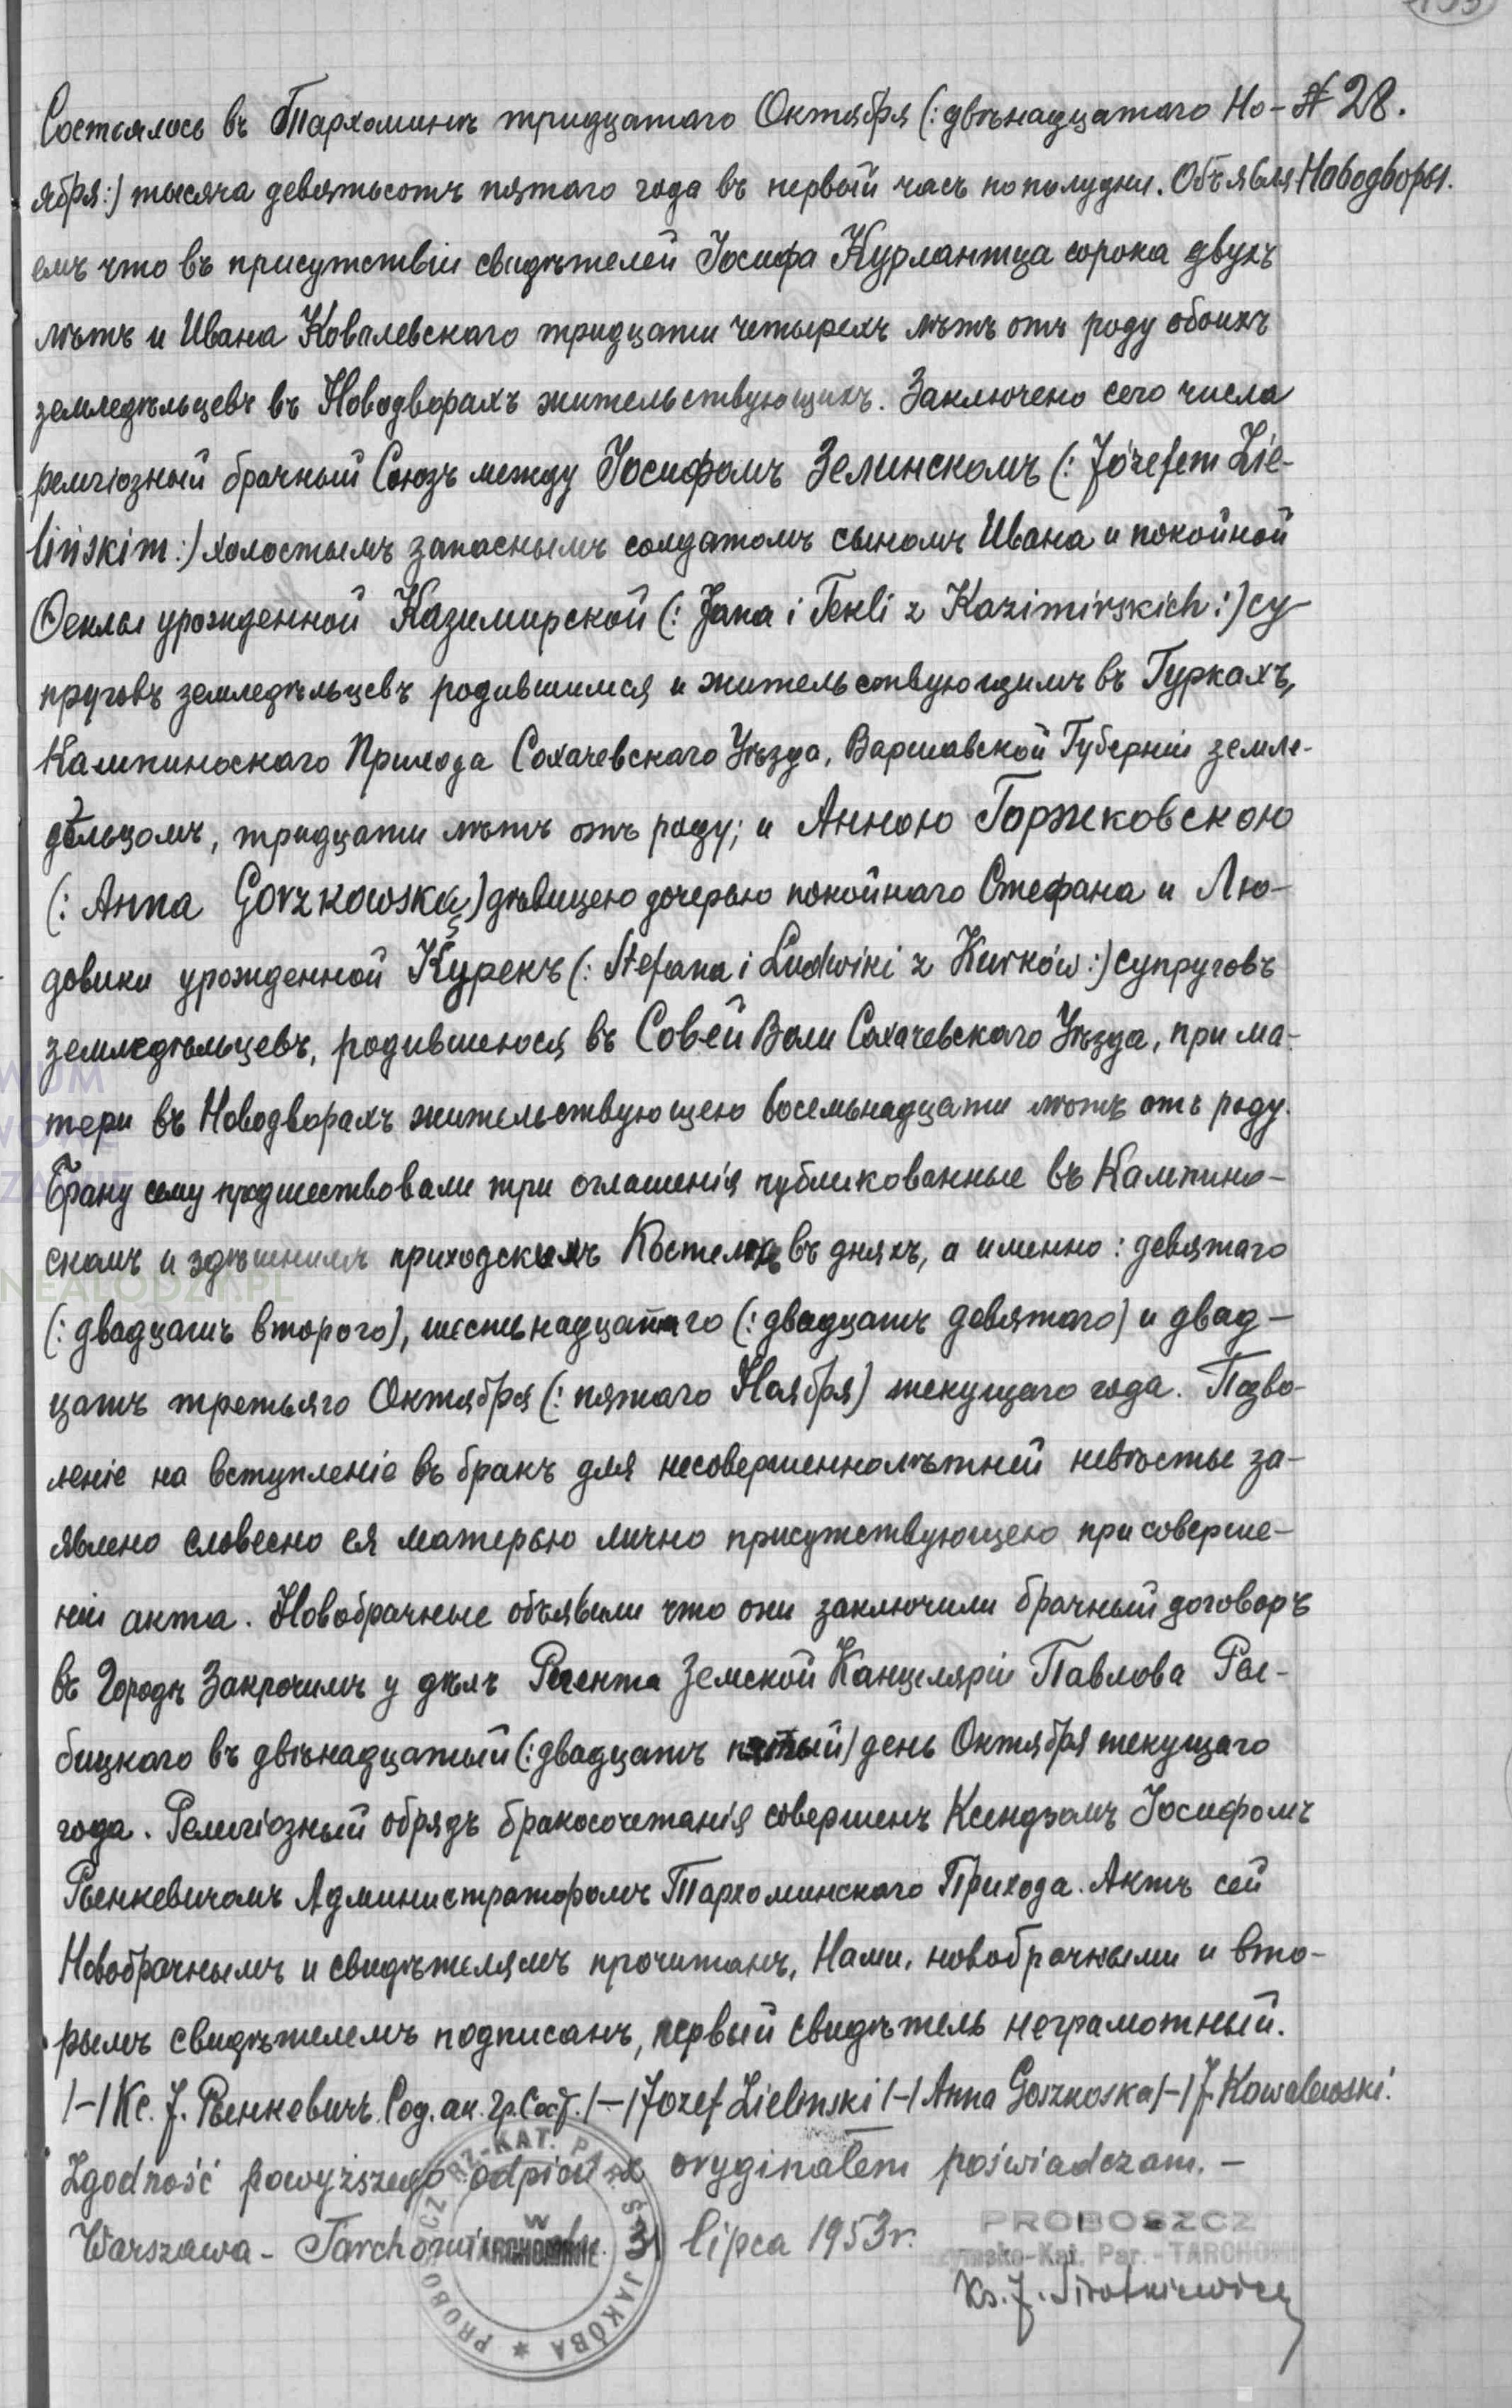 Состоялось въ Тархоминѣ тридцатаго Октября (: двѣнадцатаго Но- № 28.
ября:) тысяча девятьсотъ пятаго года въ первый часъ пополудни. Объявля- Новодворы.
емъ что въ присутствіи свидѣтелей Іосифа Курлантца сорока двухъ
лѣтъ и Ивана Ковалевскаго тридцати четырехъ лѣтъ отъ роду обоихъ
земледѣльцевъ въ Новодворахъ жительствующихъ. Заключено сего числа
религіозный брачный Союзъ между Іосифомъ Зелинскомъ (: Józefem Zie-
lińskim:) холостымъ запаснымъ солдатомъ сыномъ Ивана и покойной
Феклы урожденной Казимирской (: Jana i Tekli z Kazimirskich:) су-
пруговъ земледѣльцевъ родившимся и жительствующимъ въ Гуркахъ,
Кампиноскаго Прихода Сохачевскаго Уѣзда, Варшавской Губерніи земле-
дѣльцомъ, тридцати лѣтъ отъ роду; и Анною Горжковскою
(: Anna Gorzkowską) дѣвицею дочерью покойнаго Стефана и Лю-
довики урожденной Курекъ (: Stefana i Ludwiki z Kurków:) супруговъ
земледѣльцевъ, родившеюся въ Совей Воли Сохачевскаго Уѣзда, при ма-
тери въ Новодворахъ жительствующею восемьнадцати лѣтъ отъ роду.
Браку сему предшествовали три оглашенія публикованные въ Кампино-
скомъ и здѣшнимъ приходскихъ Костелхъ въ дняхъ, а именно: девятаго
(: двадцать второго), шестьнадцатаго (: двадцать девятаго) и двад-
цать третьяго Октября (: пятаго Ноября) текущаго года. Позво-
леніе на вступленіе въ бракъ для несовершеннолѣтней невѣсты за-
явлено словесно ея матерью лично присутствующею при соверше-
ніи акта. Новобрачные объявили что они заключили брачный договоръ
въ Городѣ Закрочимъ у дѣлъ Регента Земской Канцеляріи Павлова Ры-
бицкого въ двѣнадцатый (: двадцать пятый) день Октября текущаго
года. Религіозный обрядъ бракосочетанія совершенъ Ксендзомъ Іосифомъ
Рвенкевичомъ Администраторомъ Тархоминскаго Прихода. Актъ сей
Новобрачнымъ и свидѣтелямъ прочитанъ, Нами, новобрачными и вто-
рымъ свидѣтелемъ подписанъ, первый свидѣтель неграмотный.
/-/ Кс. J. Рвенкевичъ. Сод. ак. гр. Сост. /-/ Jozef Zielinski /-/ Anna Goszkoska /-/ J. Kowalewski.
Zgodność powyższego odpisu z oryginałem poświadczam. -
Warszawa - Tarchomin 31 lipca 1953 r.
PROBOSZCZ
Rzymsko-Kat. Par. - TARCHOMIN
Ks. J. Sirotkiewicz
PROBOSZCZ RZ-KAT. PAR. Ś. JAKÓBA
W
TARCHOMINIE